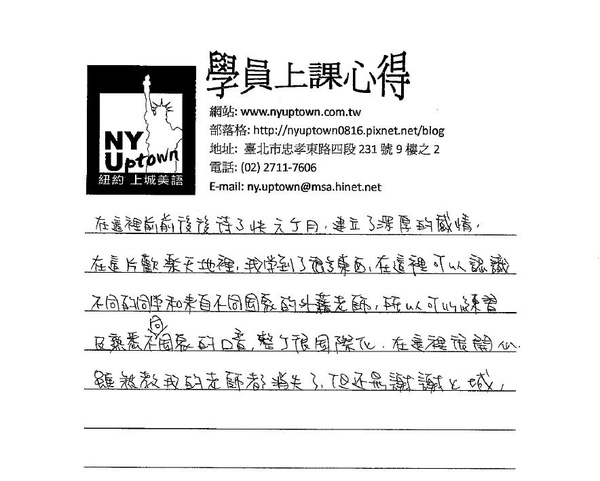 學員上課心得
網站: www.nyuptown.com.tw
部落格: http://nyuptown0816.pixnet.net/blog
地址: 臺北市忠孝東路四段 231 號 9 樓之 2
電話: (02) 2711-7606
E-mail: ny.uptown@msa.hinet.net
NY
Uptown
紐約 上城美語
在這裡前前後後待了快六个月,建立了深厚的感情,
在這片歡樂天地裡,我學到了很多東西,在這裡可以認識
不同的同學和來自不同國家的外籍老師,所以可以練習
及熟悉不同國家的口音,整个很國際化.在這裡很開心.
雖然教我的老師都消失了,但還是謝謝上城,